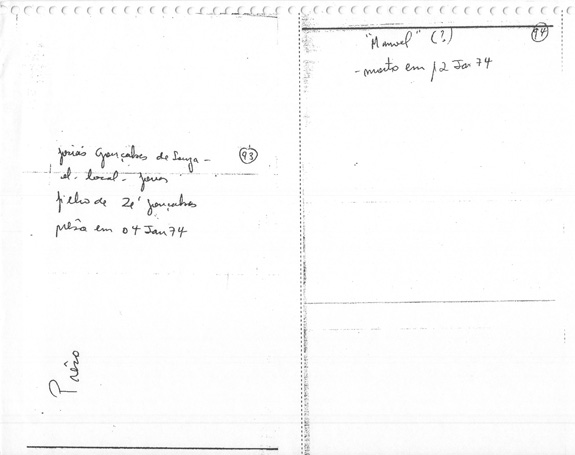 Josias Gonçalves de Souza - 93
el. local - jovem
filho de Zé Gonçalves
prêso em 04 Jan 74
Prêso
94
"Manoel" (?)
- morto em 12 Jan 74